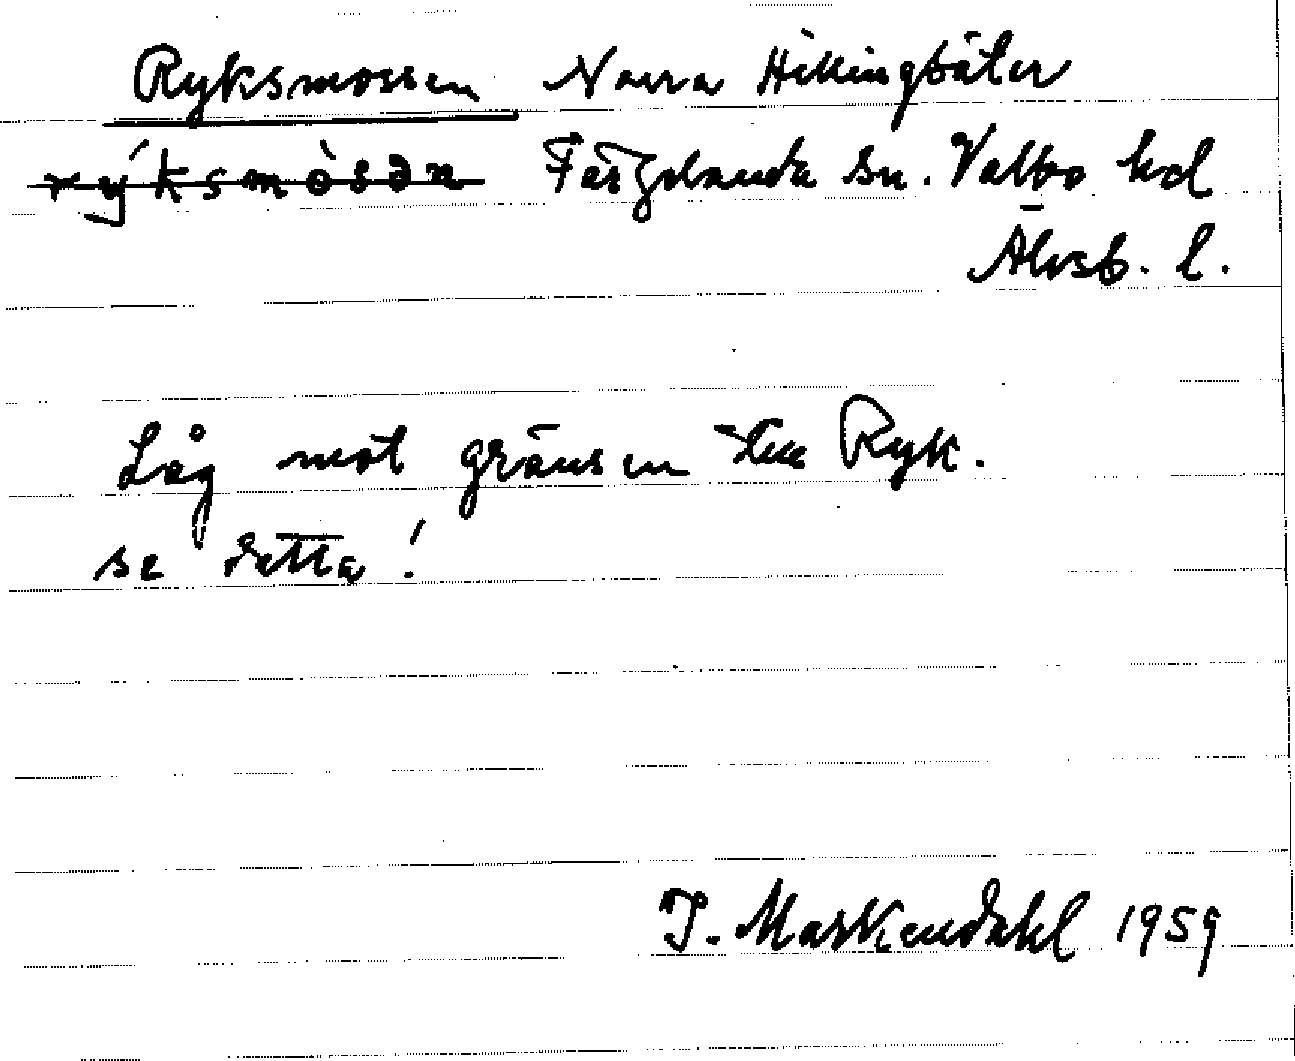 Ryksmossen Norra Hikingsäter
rýksmòsən Färgelanda sn. Valbo hd
Älvsb. l.
Låg mot gränsen till Ryk.
se detta!
J. Markendahl 1959